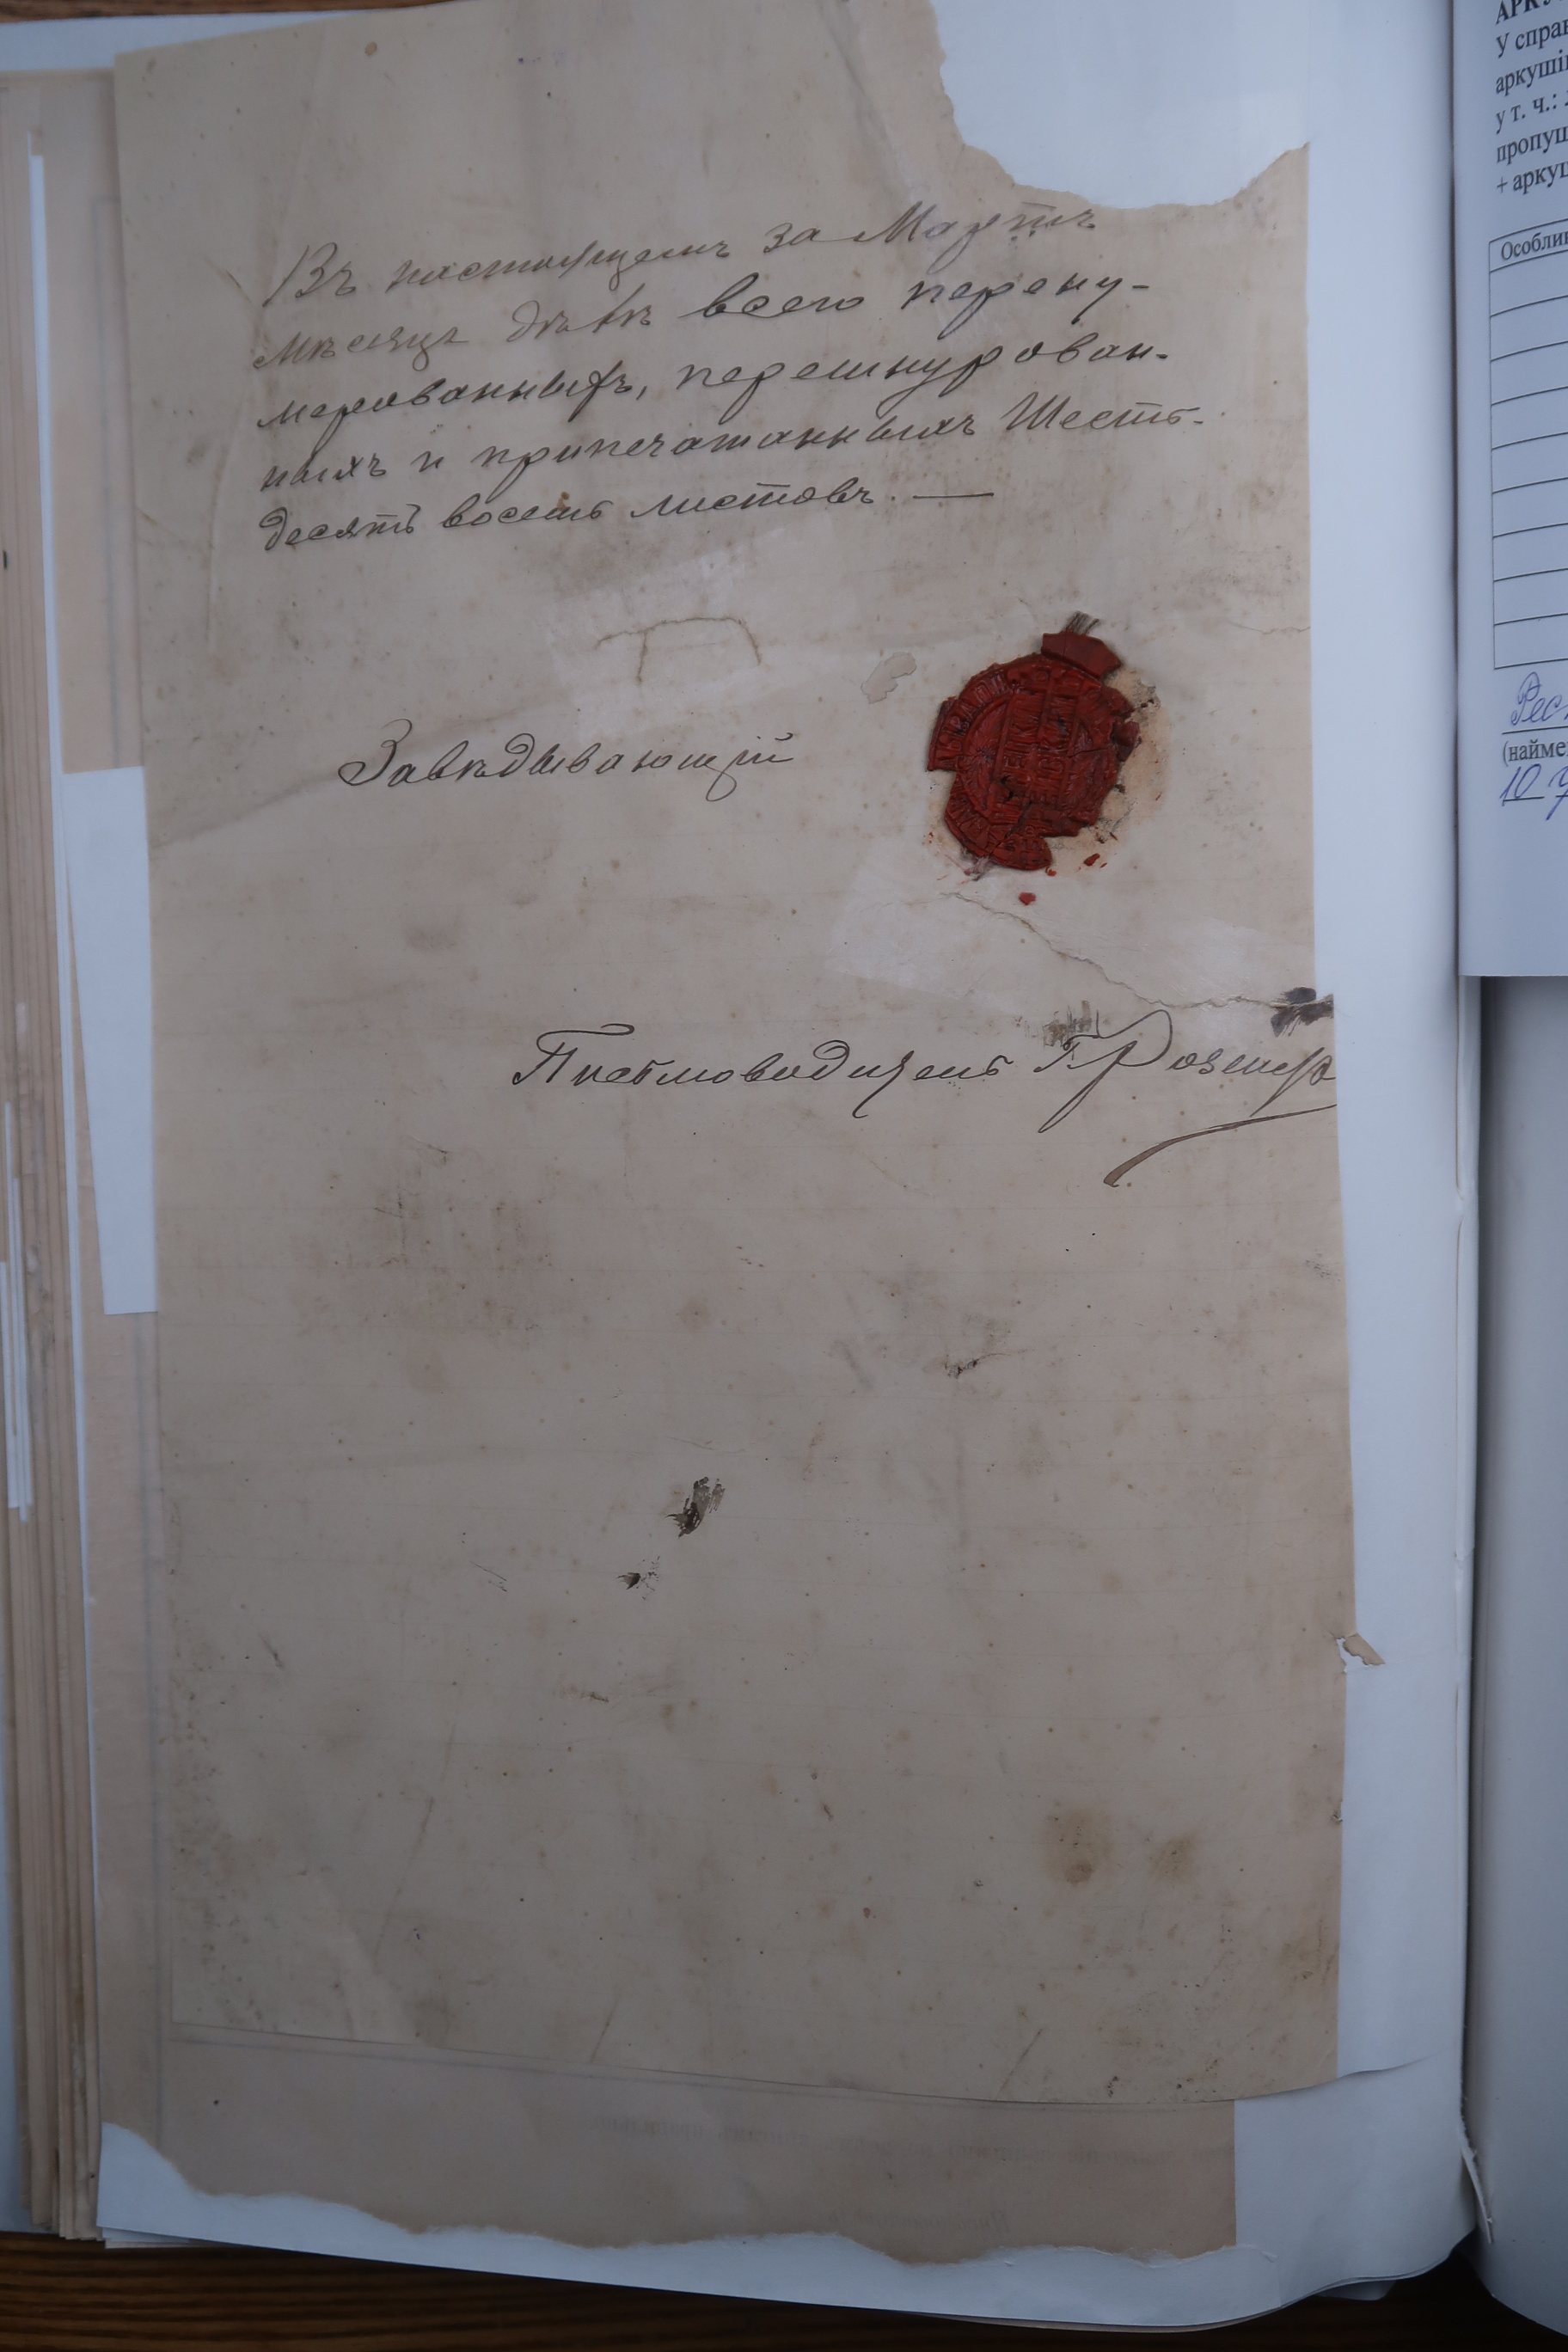 Въ настоящемъ за Мартъ
мѣсяцъ дѣлѣ всего перену-
мерованныхъ, перешнурован-
ныхъ и припечатанныхъ Шесть-
десятъ восемь листовъ. —
Завѣдывающій
Письмоводитель Г. Розенф
У справ
аркушів
у т. ч.:
пропущ
+ аркуш
Особлив
Рес
(найме
10